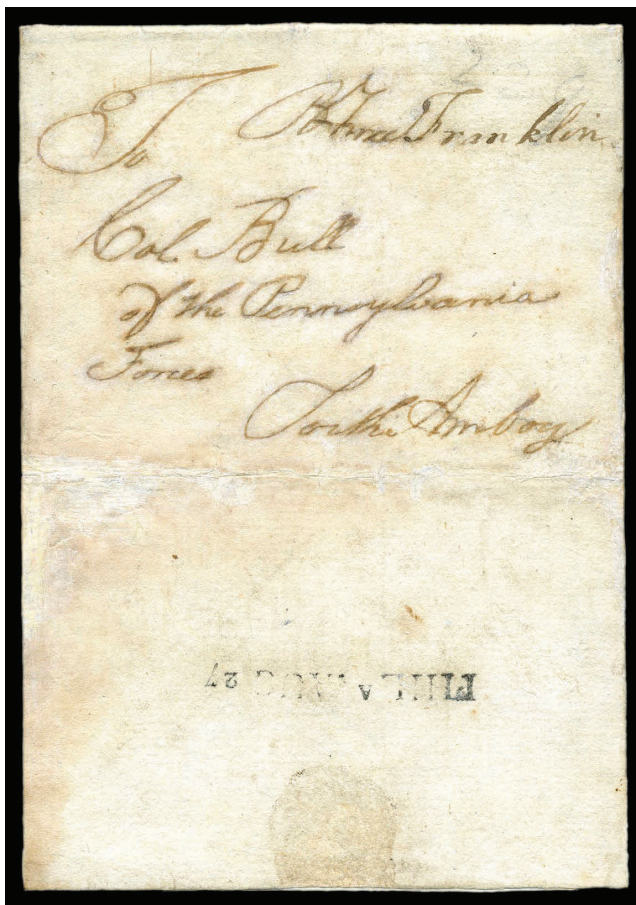 To B Free Franklin
Col. Bull
of the Pennsylvania
Forces
Perth Amboy
PHILA AUG 27